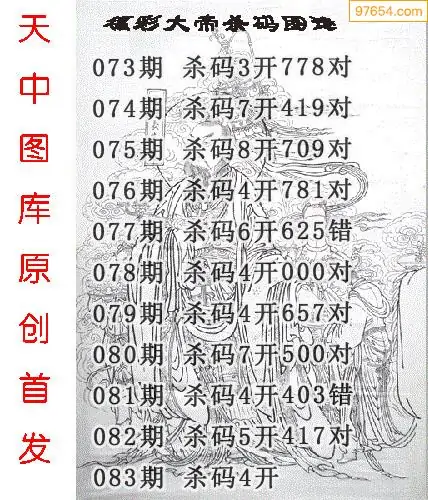 97654.com
彩大帝杀码图
天中图库原创首发
073期 杀码3开778对
074期 杀码7开419对
075期 杀码8开709对
076期 杀码4开781对
077期 杀码6开625错
078期 杀码4开000对
079期 杀码4开657对
080期 杀码7开500对
081期 杀码4开403错
082期 杀码5开417对
083期 杀码4开